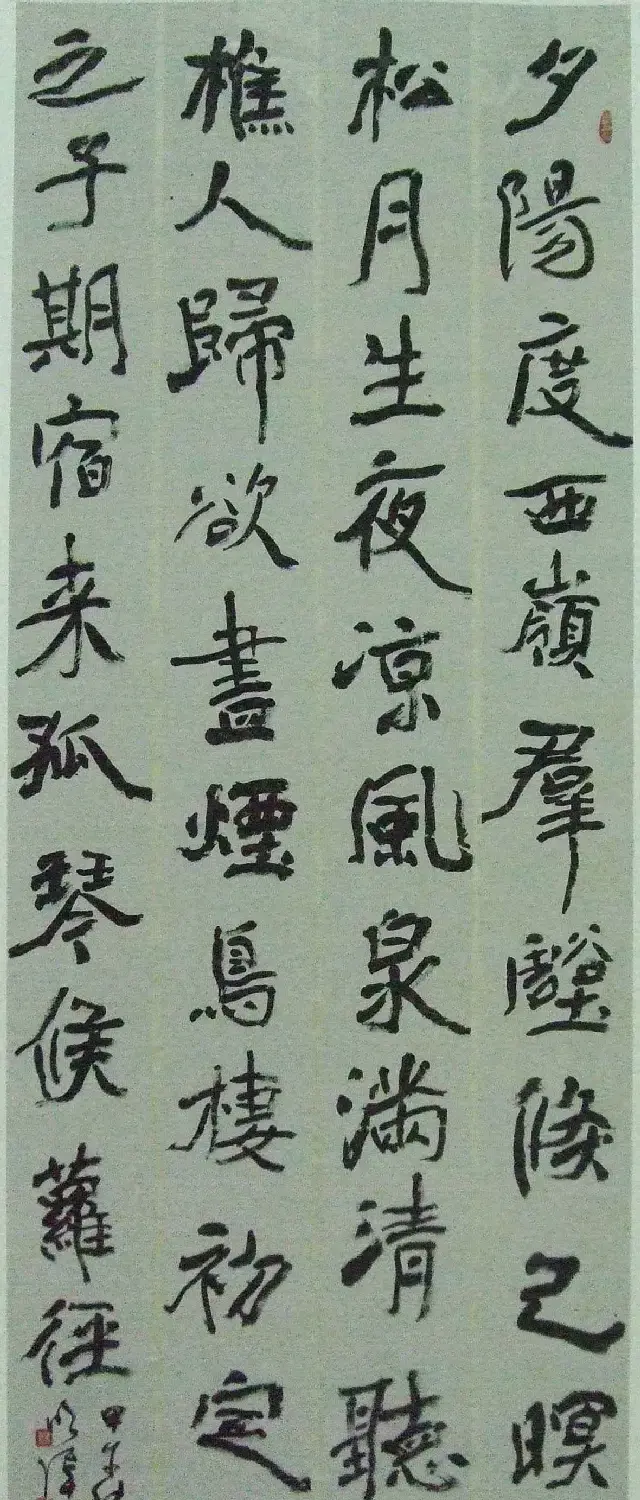 夕陽度西嶺羣壑倏已暝
松月生夜涼風泉滿清聽
樵人歸欲盡煙鳥棲初定
之子期宿来孤琴候蘿徑
甲午